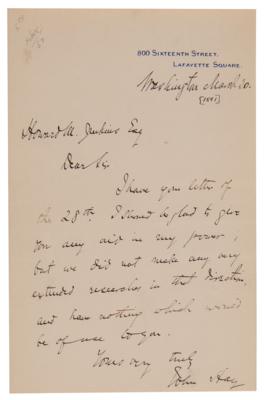 800 SIXTEENTH STREET.
LAFAYETTE SQUARE.
Washington March 30.
[1891]
Howard M. Jenkins Esq
Dear Sir
I have your letter of
the 28th. I should be glad to give
you any aid in my power,
but we did not make any very
extended researches in that direction
and have nothing which would
be of use to you.
Yours very truly
John Hay